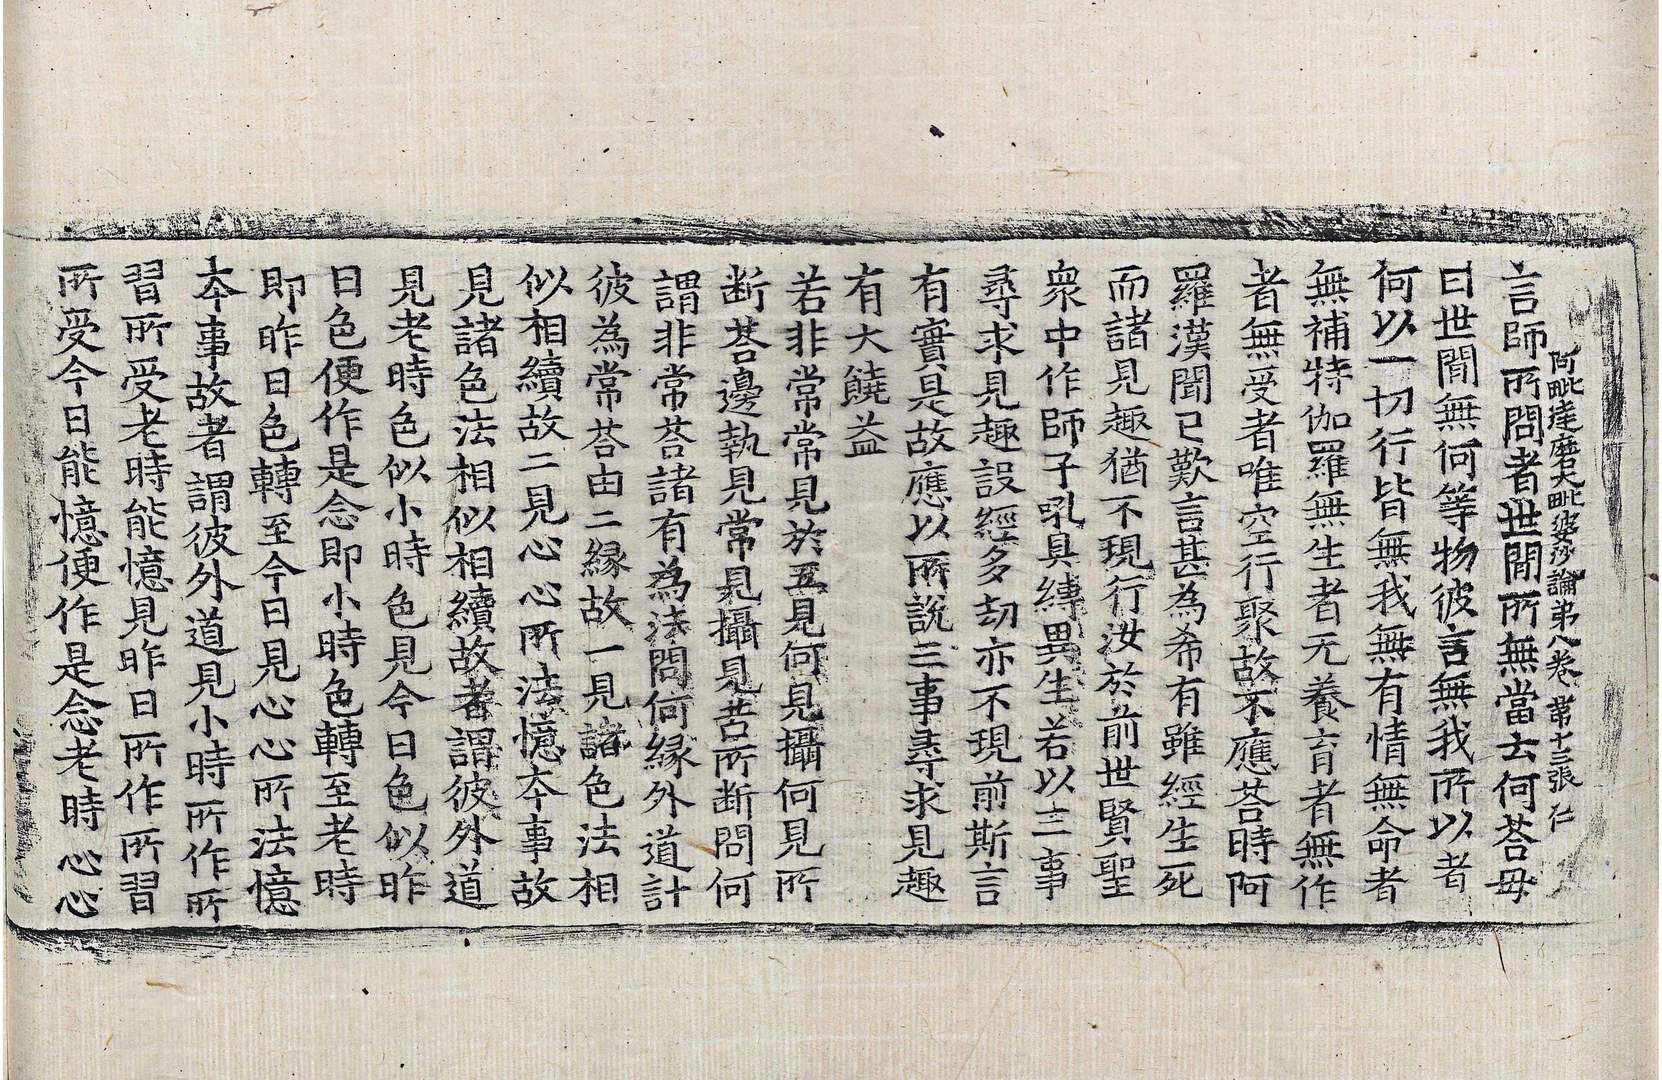 阿毗達磨大毗婆沙論第八卷 第十三張 仁
言師所問者世間所無當去何荅毋
曰世間無何等物彼言無我所以者
何以一切行皆無我無有情無命者
無補特伽羅無生者无養育者無作
者無受者唯空行聚故不應荅時阿
羅漢聞已歎言甚為希有雖經生死
而諸見趣猶不現行汝於前世賢聖
衆中作師子吼具縛異生若以三事
尋求見趣設經多劫亦不現前斯言
有實是故應以所說三事尋求見趣
有大饒益
若非常常見於五見何見攝何見所
断荅邊執見常見攝見苦所断問何
謂非常荅諸有為法問何縁外道計
彼為常荅由二縁故一見諸色法相
似相續故二見心心所法憶夲事故
見諸色法相似相續故者謂彼外道
見老時色似小時色見今日色似昨
日色便作是念即小時色轉至老時
即昨日色轉至今日見心心所法憶
夲事故者謂彼外道見小時所作所
習所受老時能憶見昨日所作所習
所受今日能憶便作是念老時心心